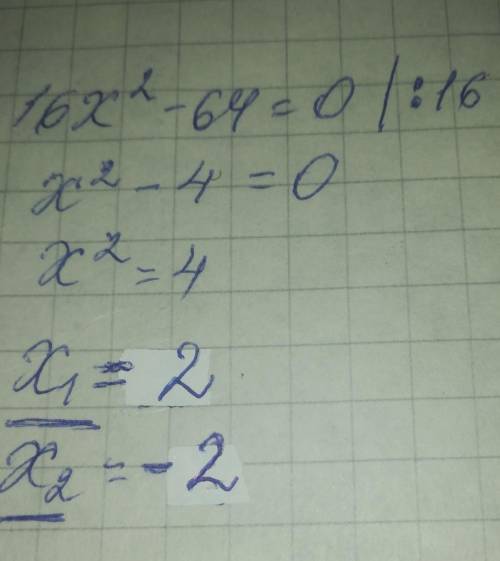 16x² - 64 = 0 | : 16
x² - 4 = 0
x² = 4
x₁ = 2
x₂ = - 2